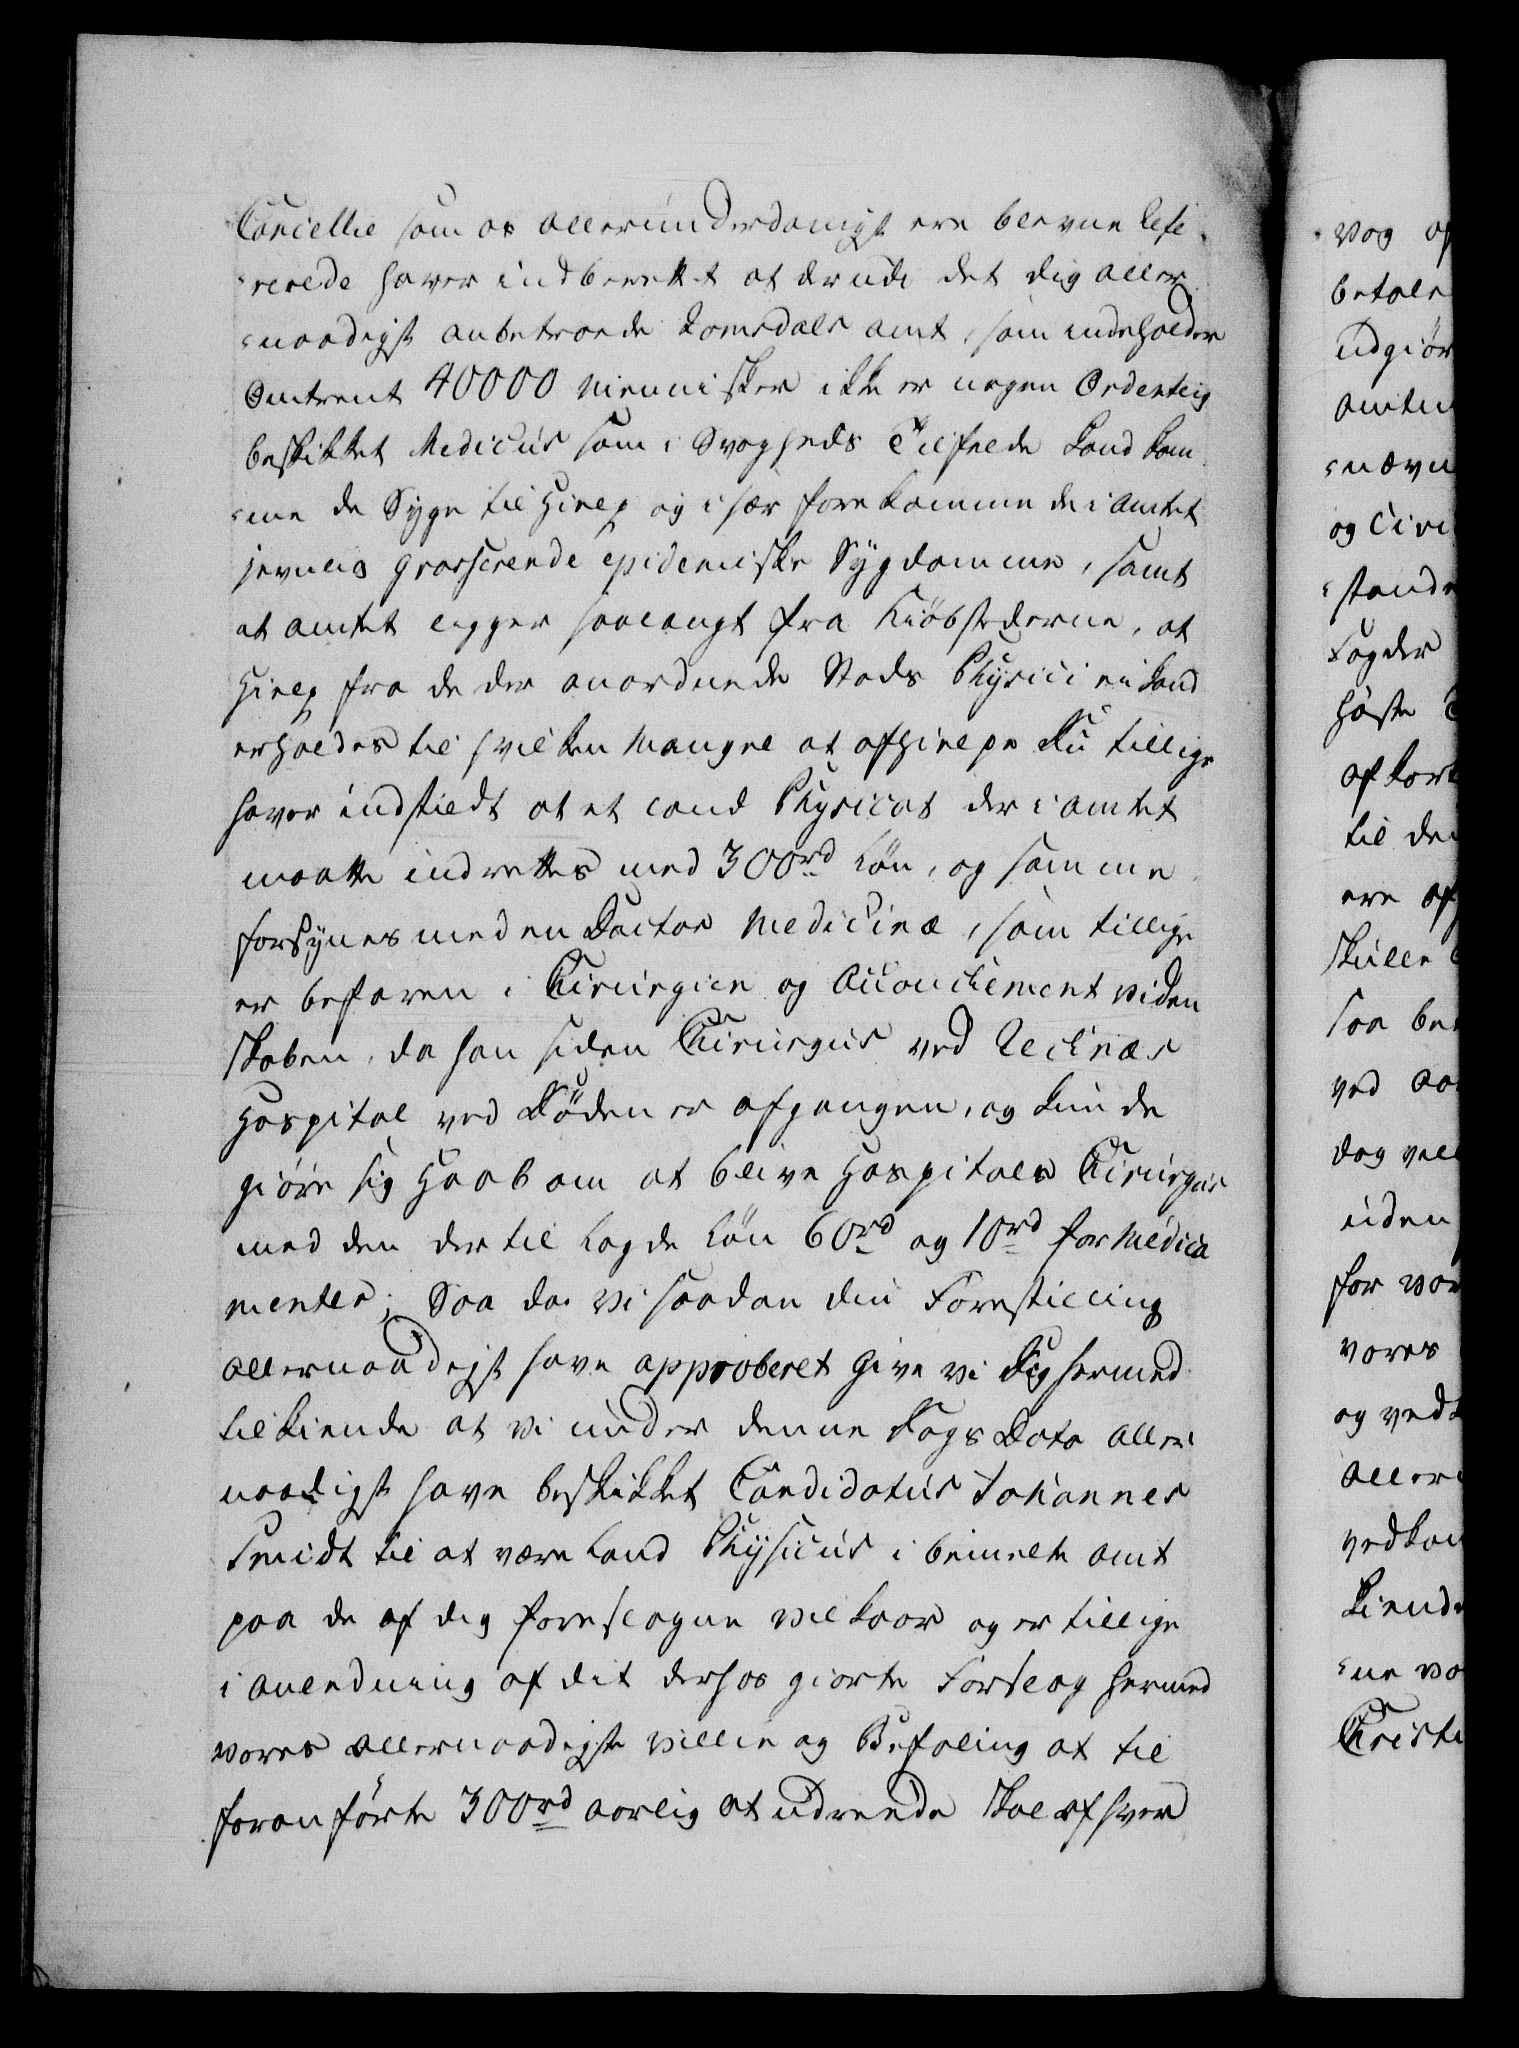 Cancellie som os allerunderdanigst ere blevne Refe¬
=rerede haver indberettet at der udi det dig aller¬
=naadigst anbetroede Romsdals Amt, som indeholder
Omtrent 40000 Mennisker ikke er nogen Ordentlig
beskikket Medicus som i Svagheds Tilfælde kand kom¬
=me de Syge til Hielp og i sær forekomme de i Amtet
jevnlig grasserende epidemiske Sÿgdomme, samt
at Amtet ligger saalangt fra Kiöbstæderne, at
Hielp fra de der anordnede Stads Physici ei kand
erholdes til hvilken Mangel at afhielpe Du tillige
haver indstiedt at et Land Physicat der i Amtet
maatte indrettes med 300rd Lön, og samme
forsÿnes med en Doctor Medicinæ, som tillige
er befaren i Chirurgien og Accouchement viden
skaben, da han siden Chirurgus ved Recknæs
Hospital ved Döden er afgangen, og kunde
giöre sig Haab om at blive Hospitals Chirurgus
med den dertil lagde Lön 60rd og 10rd for Medica
menter; Saa da vi saadan din Forestilling
allernaadigst have approberet Give vi Dig hermed
tilkiende at vi under denne Dags Dato aller
naadigst have beskikket Candidatus Johannes
Smidt til at være Land Physicus i bemelte Amt
paa de af dig foreslagne Vilkaar og er tillige
i Anledning af dit derhos giorte Forslag hermed
vores allernaadigste Villie og Befaling at til
foranförte 300rd aarlig at udrede skal af hver
vog af
betale
udgiör
Amtm
=nævn
og Civi
=stande
Fogder
höste
afkort
til de
ere af
skulle
saa be
ved Aa
dog vel
uden
for vor
vores
og ved
Aller
vedkom
kiende
=ne vo
Christi